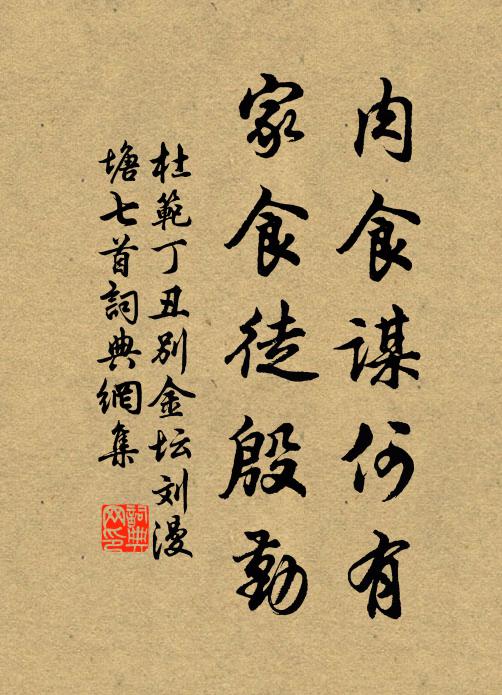 肉食謀何有
家食徒殷勤
杜範丁丑別金坛刘漫
塘七首詞典網集
詞典
网印